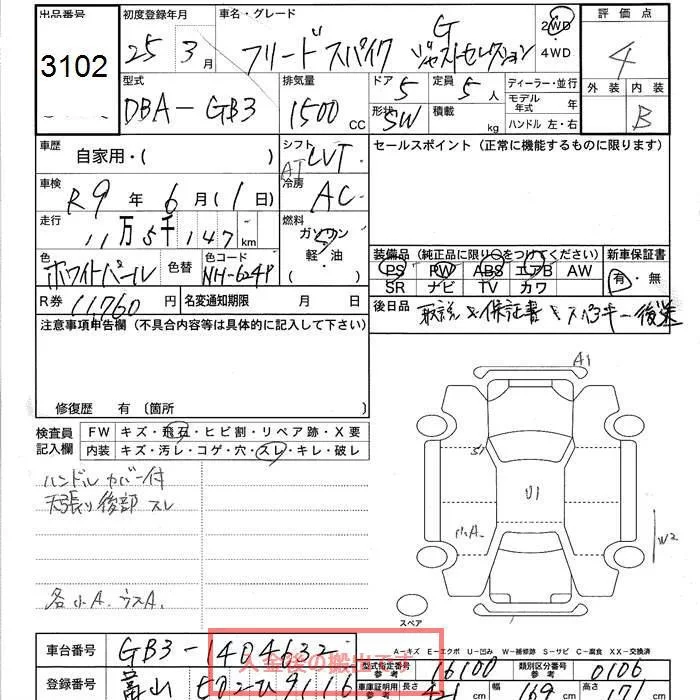 出品番号 初度登録年月 車名・グレード 評価点
3102 25年3月 フリードスパイク G ジャストセレクション 2WD 4WD 4
型式 排気量 ドア 定員 ディーラー・並行 外装 内装
DBA-GB3 1500cc 5 5人 モデル年式 年 B
形状 SW 積載 kg ハンドル 左・右
車歴 自家用・( ) シフト AT CVT セールスポイント(正常に機能するものに限ります)
車検 R9年6月(1日) 冷房 AC
走行 11万5千147km 燃料 ガソリン 軽・油 ( )
色 ホワイトパール 色替 色コード NH-624P
装備品(純正品に限り○をつけてください) 新車保証書
PS PW ABS エアB AW 有・無
SR ナビ TV カワ
R券 11,760円 名変通知期限 月 日 後日品 取説 保証書 スペアキー後送
注意事項申告欄(不具合内容等は具体的に記入して下さい)
修復歴 有 〔箇所
検査員記入欄 FW キズ・飛石・ヒビ割・リペア跡・X要
内装 キズ・汚レ・コゲ・穴・スレ・キレ・破レ
ハンドルカバー付
天張り後部スレ
各小A. ウスA.
A1
S1
U1
小A.
W2
スペア
A-キズ E-エクボ U-凹み W-補修跡 S-サビ C-腐食 XX-交換済
車台番号 GB3-1404632 型式指定番号 参考 16100 類別区分番号 参考 0106
入金後の搬出です
登録番号 富山 502 ひ 9116 車庫証明用 参考 長さ 421 cm 幅 169 cm 高さ 171 cm